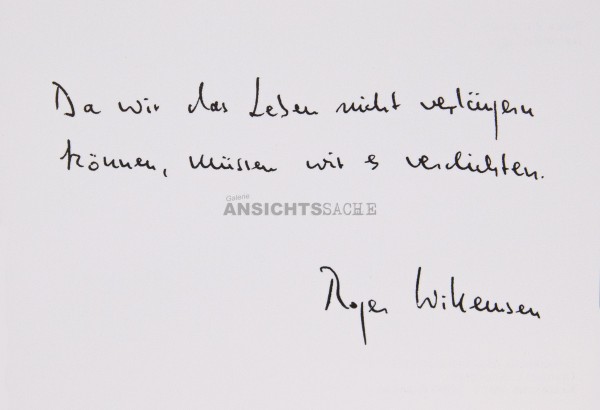 Da wir das Leben nicht verlängern
können, müssen wir es verdichten.
Galerie
ANSICHTSSACHE
Roger Willemsen